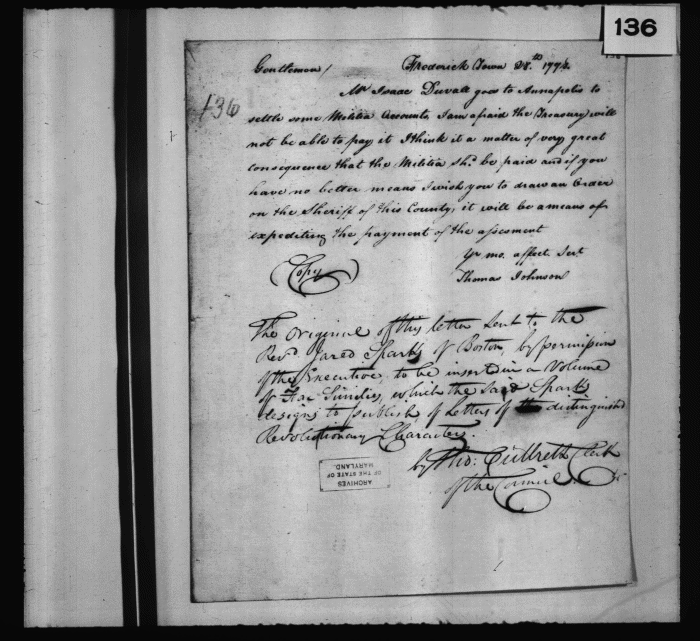 136
136
Gentlemen / Frederick Town 28.th
Mr Isaac Duvall goes to Annapolis to
settle some Militia Accounts, I am afraid the Treasury will
not be able to pay it I think it a matter of very great
consequence that the Militia shd. be paid and if you
have no better means I wish you to draw an Order
on the Sheriff of this County, it will be a means of
expediting the payment of the assesment
Yr mo. affect. Servt.
Thomas Johnson
(Copy)
The original of this letter sent to the
Revd. Jared Sparks of Boston, by permission
of the Executive, to be inserted in a Volume
of Fac Similies, which the said Sparks
designs to publish of Letters of the distinguished
Revolutionary Characters.
by Tho: Culbreth Clerk
of the Council
ARCHIVES
OF THE STATE OF
MARYLAND.